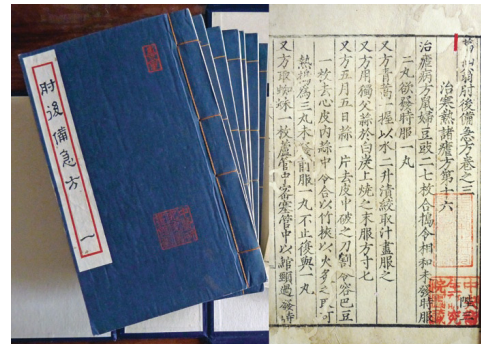 肘後備急方
一
葛仙翁肘後備急方卷之三
治寒熱諸瘧方第十六
治瘧病方鼠婦豆豉二七枚合搗令相和未發時服
二丸欲發時服一丸
又方青蒿一握以水二升漬絞取汁盡服之
又方用獨父蒜於白炭上燒之末服方寸七
又方五月五日蒜一片去皮中破之刀割令容巴豆
一枚去心皮内蒜中令合以竹挾以火炙之取可
熱搗為三丸未發前服一丸不止復與一丸
又方取蜘蛛一枚蘆管中密塞管中以綰頸過發時